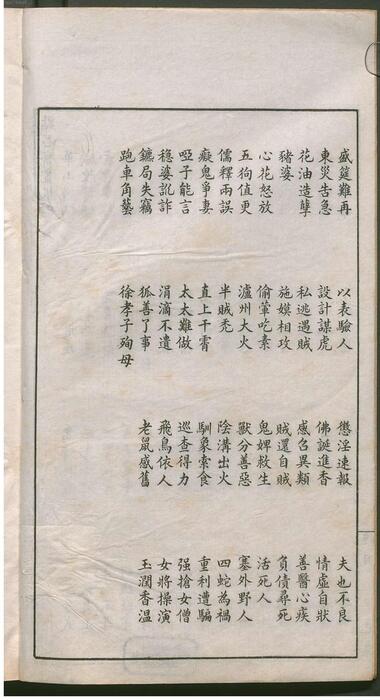 盛筵難再　以表驗人　懲淫速報　夫也不良
東災告急　設計謀虎　佛誕進香　情虛自狀
花油造孽　私逃遇賊　感召異類　善醫心疾
豬婆　施嫫相攻　賊還自賊　負債尋死
心花怒放　偷葷吃素　鬼婢救生　活死人
五狗值更　瀘州大火　獸分善惡　塞外野人
儒釋兩誤　半賊禿　陰溝出火　四蛇為禍
癡鬼爭妻　直上干霄　馴象索食　重利遭騙
啞子能言　太太難做　巡查得力　强搶女僧
穩婆訛詐　涓滴不遺　飛鳥依人　女將操演
鑣局失竊　狐善了事　老鼠感舊　玉潤香溫
跑車角藝　徐孝子殉母